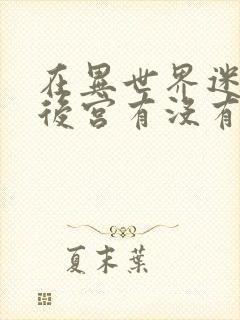 在異世界迷
後宮有沒有
夏末葉